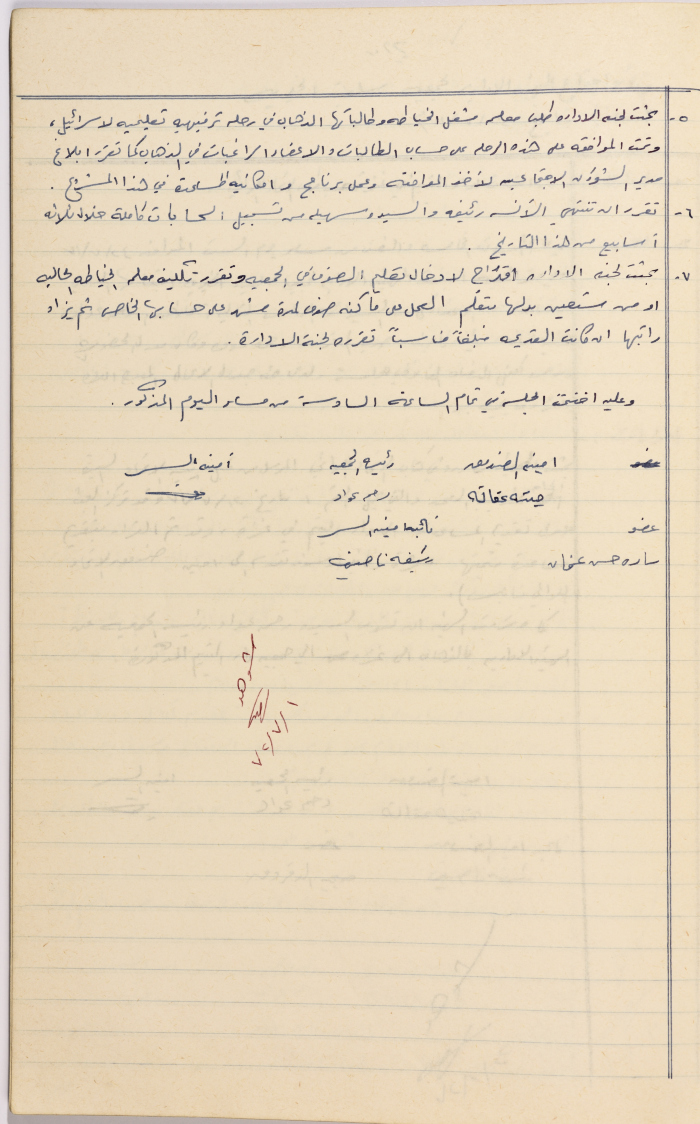 ٥- بحثت لجنة الاداره طلب معلمه مشغل الخياطه وطالباتها الذهاب في رحله ترفيهيه تعليميه لاسرائيل،
وتمت الموافقه على هذه الرحله على حساب الطالبات والاعضاء الراغبات في الذهاب كما تقرر ابلاغ
مدير الشؤون الاجتماعيه لأخذ الموافقه وعمل برنامج وامكانية المساعدة في هذا المشروع.
٦- تقرر ان تنتهي الآنسه رئيفه والسيده سهيله من تسجيل الحسابات كاملة خلال ثلاثه
أسابيع من هذا التاريخ.
٧- بحثت لجنة الاداره اقتراح لادخال تعليم الصوف في الجمعيه وتقرر تكليف معلمه الخياطه الحاليه
او من ستعين بدلها بتعلم العمل على ماكنه صوف لمدة شهر على حسابها الخاص ثم يزاد
راتبها ان كانت القديمه مبلغاً مناسباً تقرره لجنة الادارة.
وعليه اختتمت الجلسة في تمام الساعة السادسة من مساء اليوم المذكور.
امينة الصندوق رئيسة الجمعيه أمينه السر
عواد
عضو نائبة امينه السر
ساره حسن عثمان رئيفه ناصيف
شوهد
٧٢/٧/١